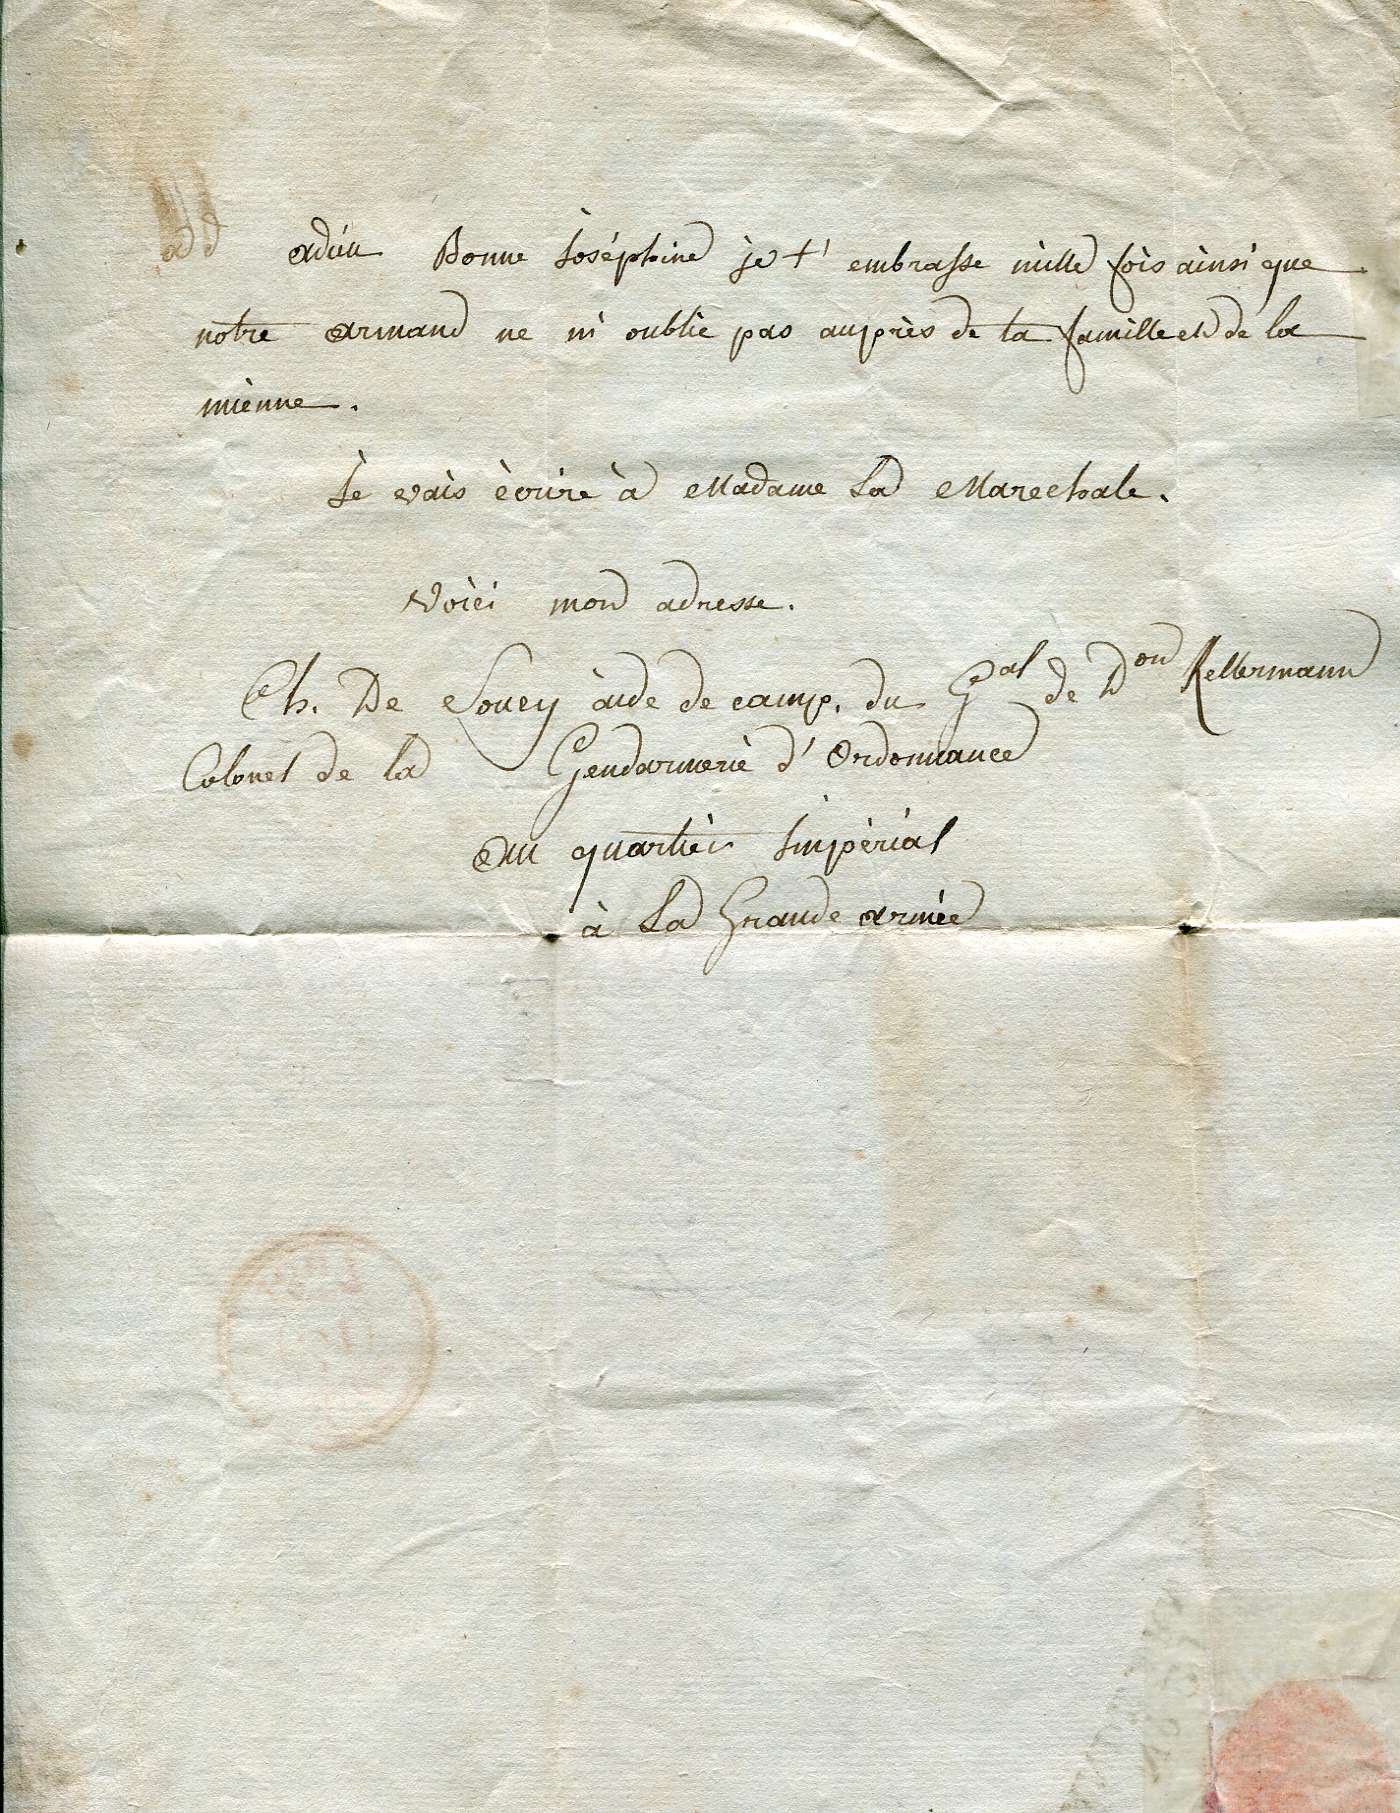 ad adieu Bonne Joséphine je t'embrasse mille fois ainsi que
notre armand ne m'oublie pas auprès de ta famille et de la
mienne.
Je vais écrire à Madame La Marechale.
Voici mon adresse.
Ch. De Soucy aide de camp. du Gal de Don Kellermann
Colonel de la Gendarmerie d'Ordonnance
au quartier Impérial
à La Grande armée